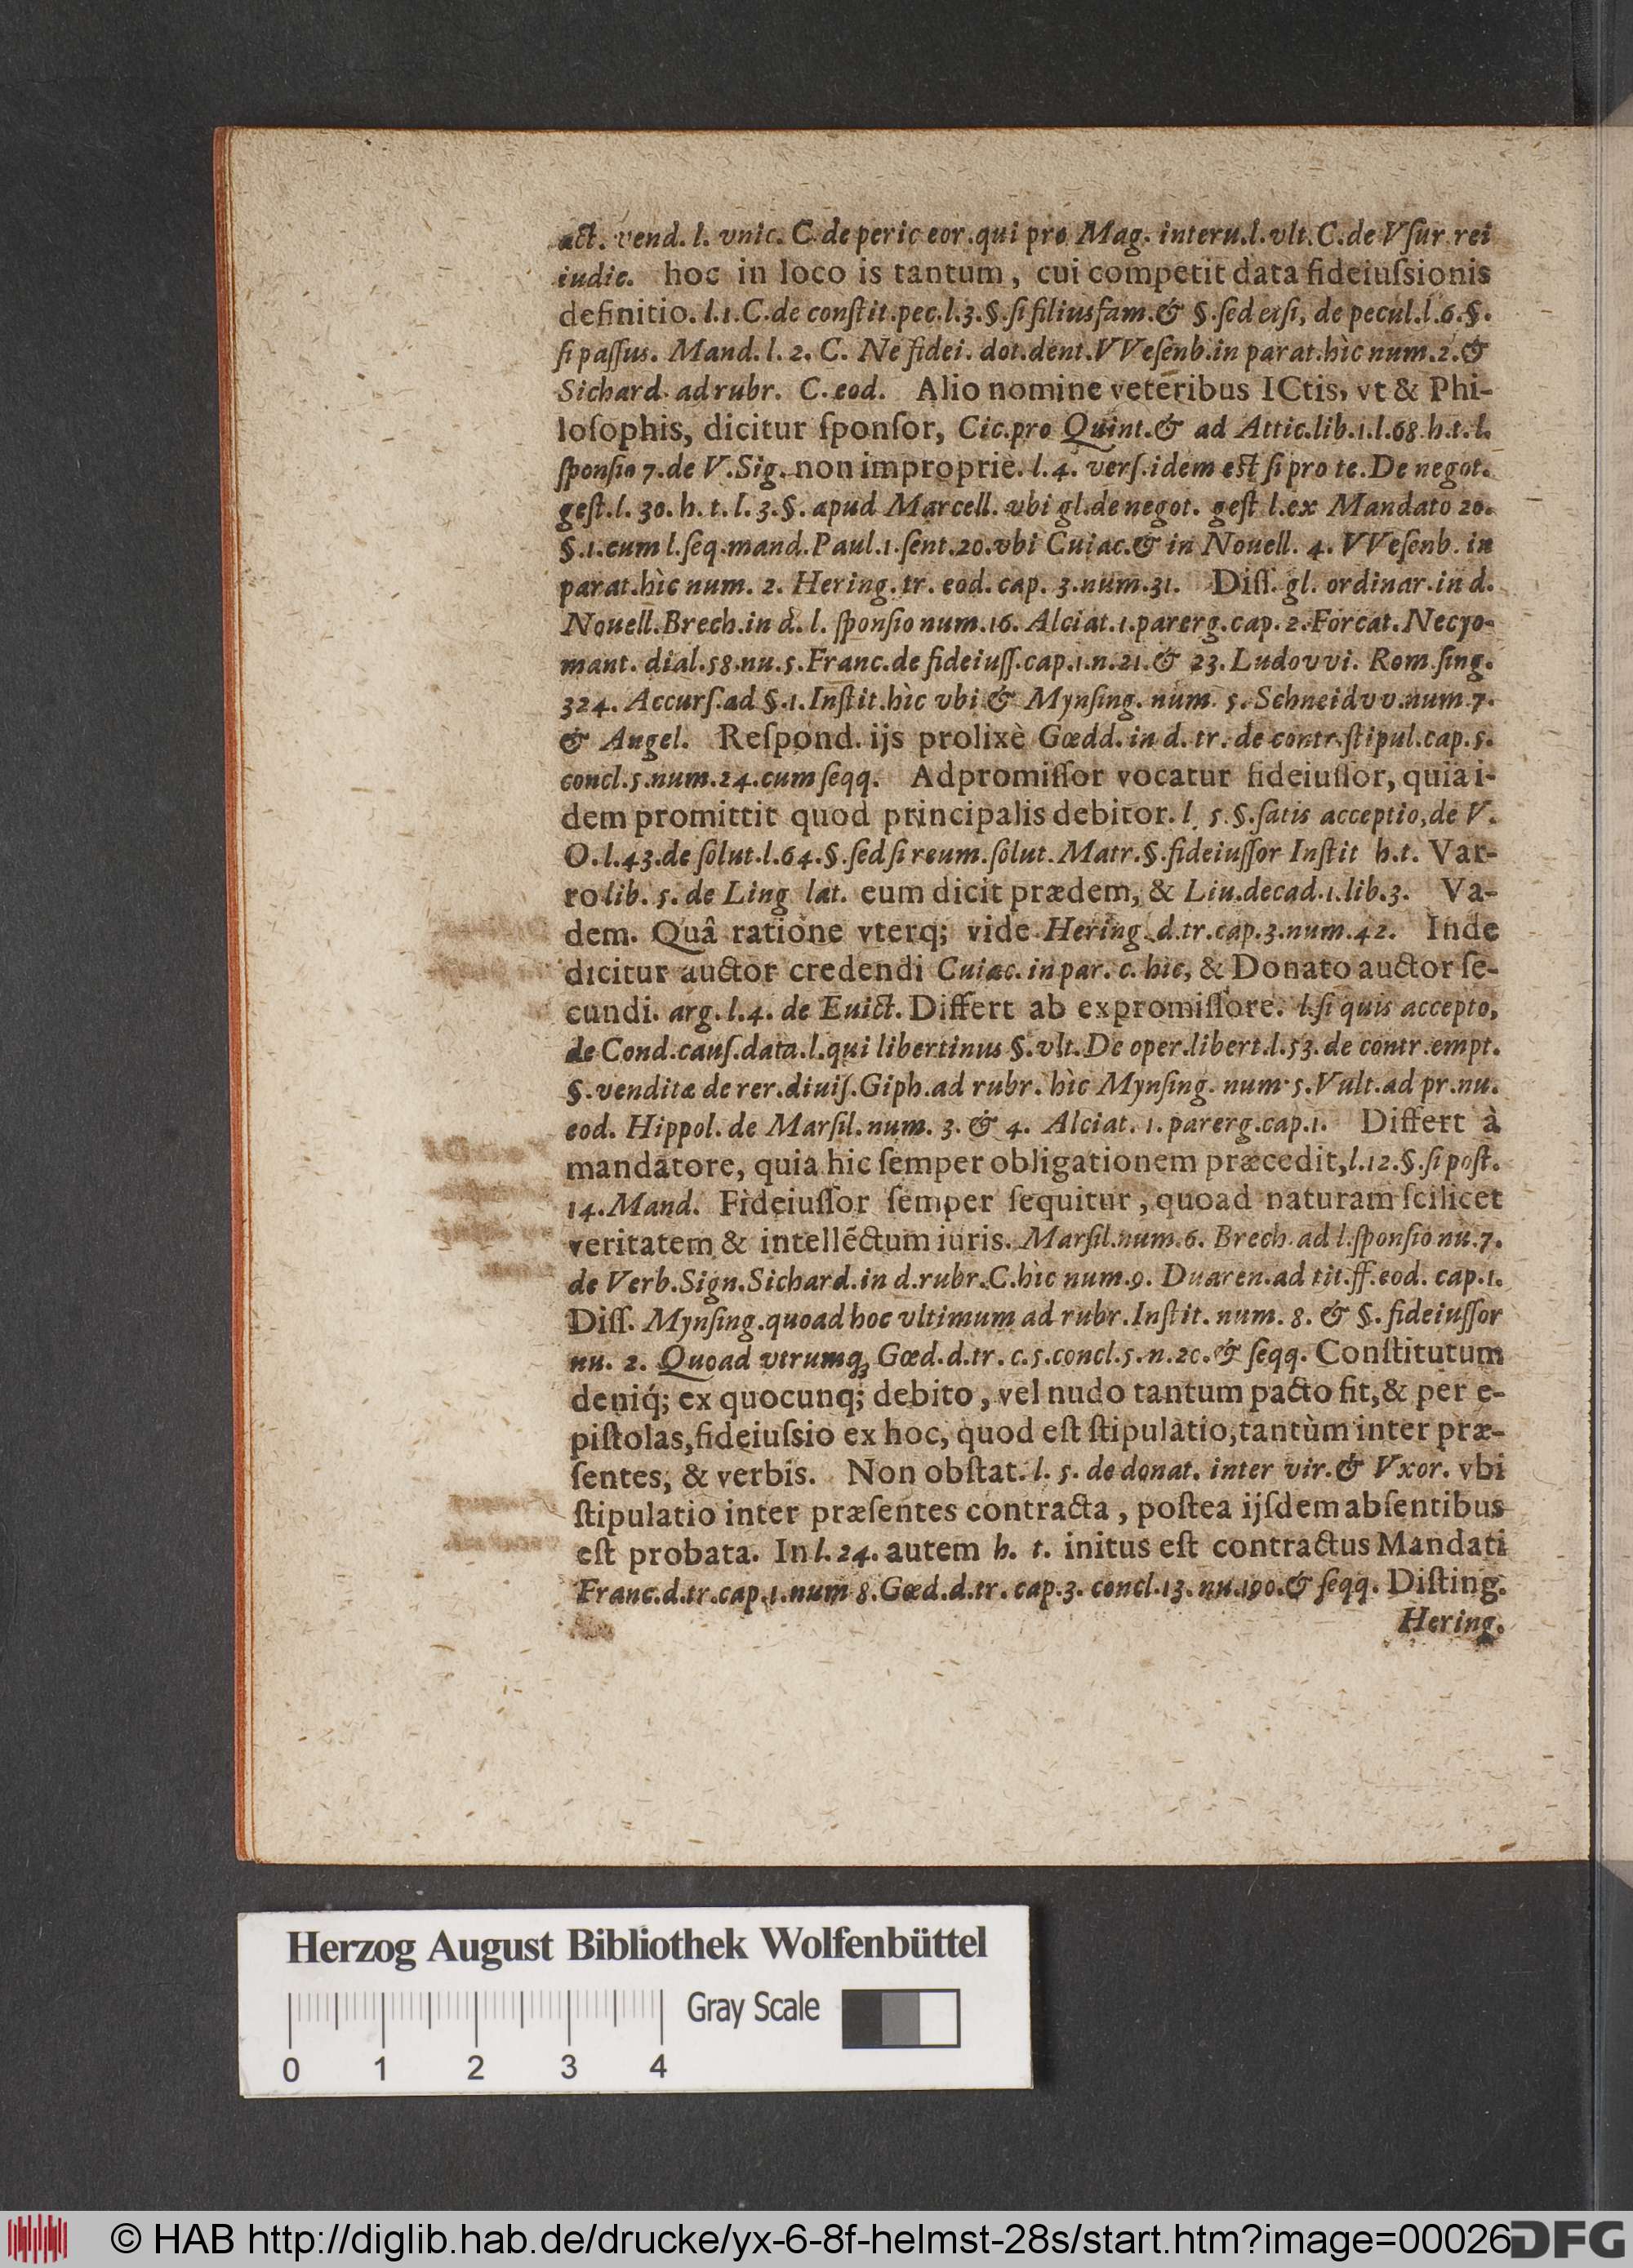 act. vend. l. vnic. C. de peric eor. qui pro Mag. interu. l. vlt. C. de Vſur rei
iudic. hoc in loco is tantum, cui competit data fideiuſsionis
definitio. l. 1. C. de conſtit. pec. l. 3. §. ſi filiusfam. & §. ſed etſi, de pecul. l. 6. §.
ſi paſſus. Mand. l. 2. C. Ne fidei. dot. dent. VVeſenb. in parat. hìc num. 2. &
Sichard. ad rubr. C. eod. Alio nomine veteribus ICtis, vt & Phi-
loſophis, dicitur ſponſor, Cic. pro Quint. & ad Attic. lib. 1. l. 68. h. t. l.
ſponſio 7. de V. Sig. non improprie. l. 4. verſ. idem est ſi pro te. De negot.
geſt. l. 30. h. t. l. 3. §. apud Marcell. vbi gl. de negot. geſt l. ex Mandato 20.
§. 1. cum l. ſeq. mand. Paul. 1. ſent. 20. vbi Cuiac. & in Nouell. 4. VVeſenb. in
parat. hìc num. 2. Hering. tr. eod. cap. 3. num. 31. Diſſ. gl. ordinar. in d.
Nouell. Brech. in d. l. ſponſio num. 16. Alciat. 1. parerg. cap. 2. Forcat. Necyo-
mant. dial. 58. nu. 5. Franc. de fideiuſſ. cap. 1. n. 21. & 23. Ludovvi. Rom. ſing.
324. Accurſ. ad §. 1. Inſtit. hìc vbi & Mynſing. num. 5. Schneidvv. num. 7.
& Angel. Reſpond. ijs prolixè Gœdd. in d. tr. de contr. ſtipul. cap. 5.
concl. 5. num. 24. cum ſeqq. Adpromiſſor vocatur fideiuſſor, quia i-
dem promittit quod principalis debitor. l. 5. §. ſatis acceptio, de V.
O. l. 43. de ſolut. l. 64. §. ſed ſi reum. ſolut. Matr. §. fideiuſſor Inſtit h. t. Var-
ro lib. 5. de Ling lat. eum dicit prædem, & Liu. decad. 1. lib. 3. Va-
dem. Quâ ratione vterq; vide Hering. d. tr. cap. 3. num. 42. Inde
dicitur auctor credendi Cuiac. in par. c. hic, & Donato auctor ſe-
cundi. arg. l. 4. de Euict. Differt ab expromiſſore. l. ſi quis accepto,
de Cond. cauſ. data. l. qui libertinus §. vlt. De oper. libert. l. 53. de contr. empt.
§. venditæ de rer. diuiſ. Giph. ad rubr. hìc Mynſing. num. 5. Vult. ad pr. nu.
eod. Hippol. de Marſil. num. 3. & 4. Alciat. 1. parerg. cap. 1. Differt à
mandatore, quia hic ſemper obligationem præcedit, l. 12. §. ſi poſt.
14. Mand. Fideiuſſor ſemper ſequitur, quoad naturam ſcilicet
veritatem & intellectum iuris. Marſil. num. 6. Brech. ad l. ſponſio nu. 7.
de Verb. Sign. Sichard. in d. rubr. C. hìc num. 9. Duaren. ad tit. ff. eod. cap. 1.
Diſſ. Mynſing. quoad hoc vltimum ad rubr. Inſtit. num. 8. & §. fideiuſſor
nu. 2. Quoad vtrumq; Gœd. d. tr. c. 5. concl. 5. n. 20. & ſeqq. Conſtitutum
deniq́; ex quocunq; debito, vel nudo tantum pacto fit, & per e-
piſtolas, fideiuſsio ex hoc, quod eſt ſtipulatio, tantùm inter præ-
ſentes, & verbis. Non obſtat. l. 5. de donat. inter vir. & Vxor. vbi
ſtipulatio inter præſentes contracta, poſtea ijſdem abſentibus
eſt probata. In l. 24. autem h. t. initus eſt contractus Mandati
Franc. d. tr. cap. 1. num 8. Gœd. d. tr. cap. 3. concl. 13. nu. 190. & ſeqq. Diſting.
Hering.
Herzog August Bibliothek Wolfenbüttel
Gray Scale
0 1 2 3 4
© HAB http://diglib.hab.de/drucke/yx-6-8f-helmst-28s/start.htm?image=00026
DFG